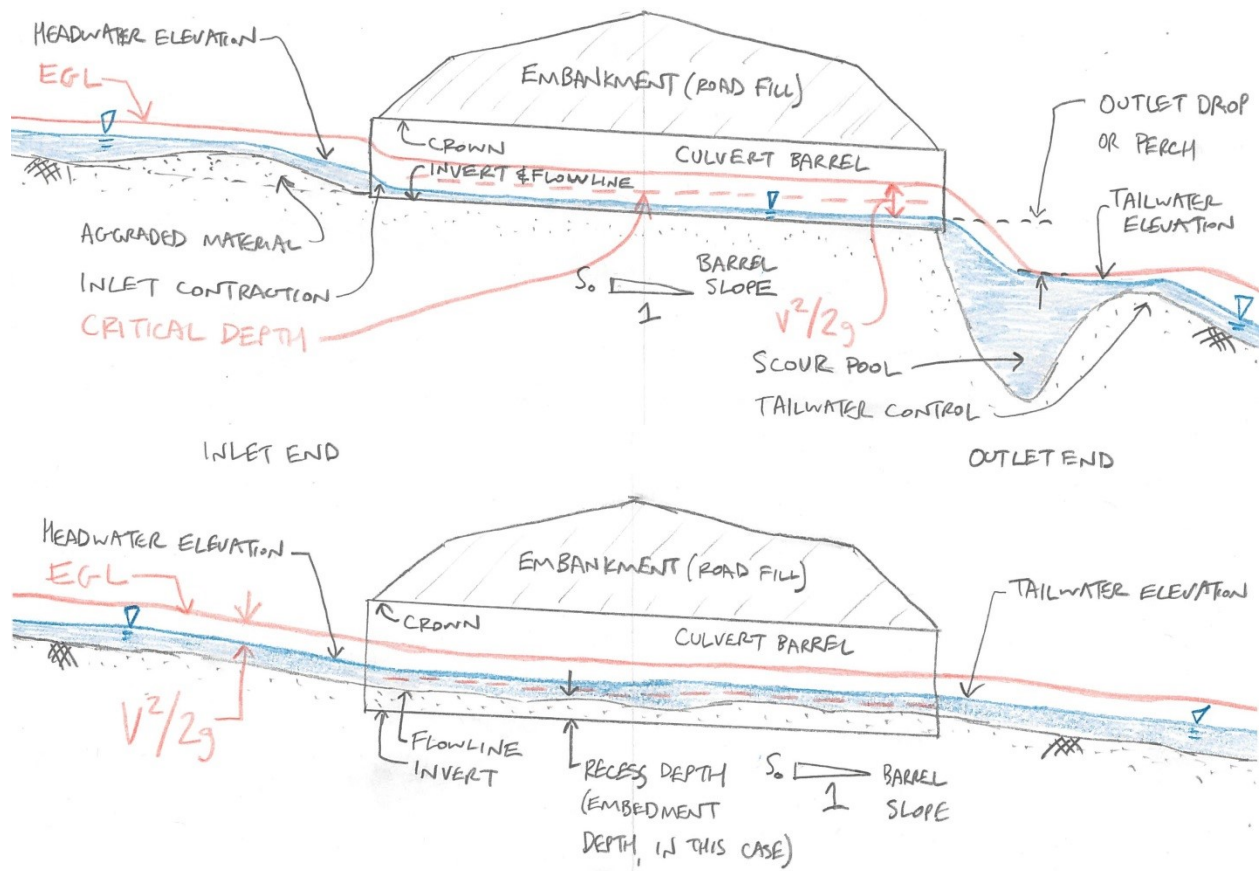 HEADWATER ELEVATION
EGL
EMBANKMENT (ROAD FILL)
OUTLET DROP
OR PERCH
CROWN
CULVERT BARREL
INVERT & FLOWLINE
TAILWATER
ELEVATION
AGGRADED MATERIAL
INLET CONTRACTION
CRITICAL DEPTH
S₀
1
BARREL
SLOPE
V²/2g
SCOUR POOL
TAILWATER CONTROL
INLET END
OUTLET END
HEADWATER ELEVATION
EGL
EMBANKMENT (ROAD FILL)
TAILWATER ELEVATION
CROWN
CULVERT BARREL
V²/2g
FLOWLINE
INVERT
RECESS DEPTH
(EMBEDMENT
DEPTH, IN THIS CASE)
S₀
1
BARREL
SLOPE